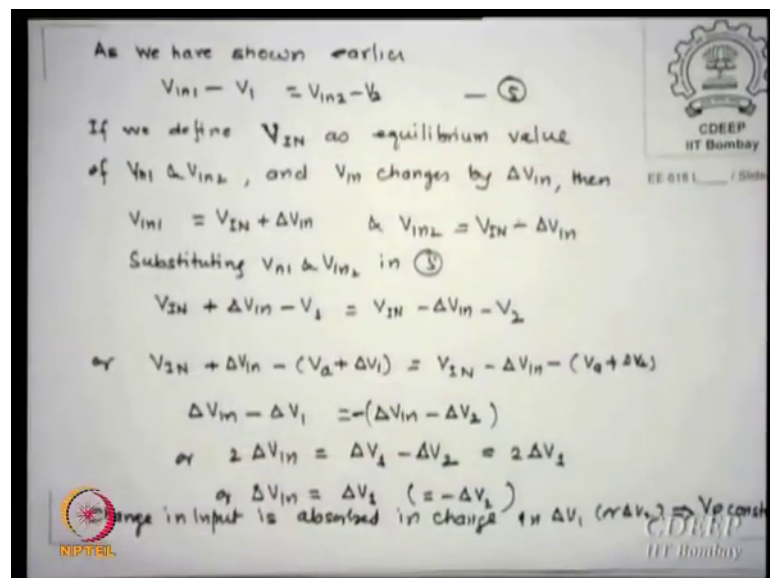 As we have shown earlier
Vin1 − V1 = Vin2 − V2 — ⑤
If we define VIN as equilibrium value
of Vn1 & Vin2, and Vin changes by ΔVin, then
Vin1 = VIN + ΔVin & Vin2 = VIN − ΔVin
Substituting Vn1 & Vin2 in ⑤
VIN + ΔVin − V1 = VIN − ΔVin − V2
or VIN + ΔVin − (Va + ΔV1) = VIN − ΔVin − (Va + ΔV2)
ΔVin − ΔV1 = −(ΔVin − ΔV2)
or 2 ΔVin = ΔV1 − ΔV2 = 2 ΔV1
or ΔVin = ΔV1 (= −ΔV2)
Change in Input is absorbed in change in ΔV1 (or ΔV2) ⇒ Vp const
CDEEP
IIT Bombay
EE 618 L____ / Slide
NPTEL
CDEEP
IIT Bombay